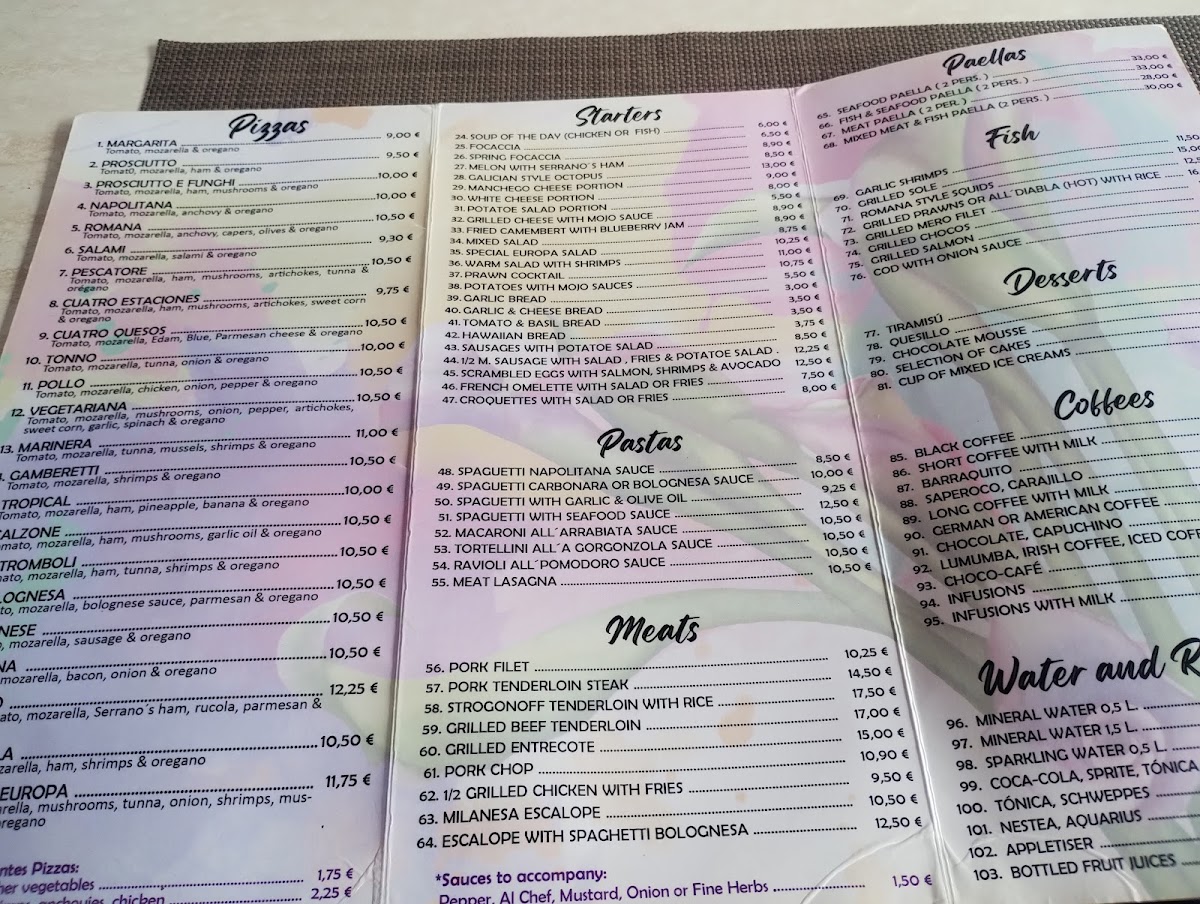 Pizzas
1. MARGARITA 9,00 €
Tomato, mozarella & oregano
2. PROSCIUTTO 9,50 €
Tomat0, mozarella, ham & oregano
3. PROSCIUTTO E FUNGHI 10,00 €
Tomato, mozarella, ham, mushrooms & oregano
4. NAPOLITANA 10,00 €
Tomato, mozarella, anchovy & oregano
5. ROMANA 10,50 €
Tomato, mozarella, anchovy, capers, olives & oregano
6. SALAMI 9,30 €
Tomato, mozarella, salami & oregano
7. PESCATORE 10,50 €
Tomato, mozarella, ham, mushrooms, artichokes, tuna &
oregano
8. CUATRO ESTACIONES 9,75 €
Tomato, mozarella, ham, mushrooms, artichokes, sweet corn
& oregano
9. CUATRO QUESOS 10,50 €
Tomato, mozarella, Edam, Blue, Parmesan cheese & oregano
10. TONNO 10,00 €
Tomato, mozarella, tuna, onion & oregano
11. POLLO 10,50 €
Tomato, mozarella, chicken, onion, pepper & oregano
12. VEGETARIANA 10,50 €
Tomato, mozarella, mushrooms, onion, pepper, artichokes,
sweet corn, garlic, spinach & oregano
13. MARINERA 11,00 €
Tomato, mozarella, tuna, mussels, shrimps & oregano
GAMBERETTI 10,50 €
Tomato, mozarella, shrimps & oregano
TROPICAL 10,00 €
Tomato, mozarella, ham, pineapple, banana & oregano
CALZONE 10,50 €
mozarella, ham, mushrooms, garlic oil & oregano
TROMBOLI 10,50 €
mozarella, ham, tuna, shrimps & oregano
LOGNESA 10,50 €
mozarella, bolognese sauce, parmesan & oregano
NESE 10,50 €
mozarella, sausage & oregano
NA 10,50 €
mozarella, bacon, onion & oregano
12,25 €
mozarella, Serrano´s ham, rucola, parmesan &
LA 10,50 €
zarella, ham, shrimps & oregano
EUROPA 11,75 €
rella, mushrooms, tuna, onion, shrimps, mus-
regano
ntes Pizzas:
her vegetables 1,75 €
anchovies, chicken 2,25 €
Starters
24. SOUP OF THE DAY (CHICKEN OR FISH) 6,00 €
25. FOCACCIA 6,50 €
26. SPRING FOCACCIA 8,90 €
27. MELON WITH SERRANO´S HAM 8,50 €
28. GALICIAN STYLE OCTOPUS 13,00 €
29. MANCHEGO CHEESE PORTION 9,00 €
30. WHITE CHEESE PORTION 8,00 €
31. POTATOE SALAD PORTION 5,50 €
32. GRILLED CHEESE WITH MOJO SAUCE 8,90 €
33. FRIED CAMEMBERT WITH BLUEBERRY JAM 8,90 €
34. MIXED SALAD 8,75 €
35. SPECIAL EUROPA SALAD 10,25 €
36. WARM SALAD WITH SHRIMPS 11,00 €
37. PRAWN COCKTAIL 10,75 €
38. POTATOES WITH MOJO SAUCES 5,50 €
39. GARLIC BREAD 3,00 €
40. GARLIC & CHEESE BREAD 3,50 €
41. TOMATO & BASIL BREAD 3,50 €
42. HAWAIIAN BREAD 3,75 €
43. SAUSAGES WITH POTATOE SALAD 8,50 €
44. 1/2 M. SAUSAGE WITH SALAD , FRIES & POTATOE SALAD . 12,25 €
45. SCRAMBLED EGGS WITH SALMON, SHRIMPS & AVOCADO 12,50 €
46. FRENCH OMELETTE WITH SALAD OR FRIES 7,50 €
47. CROQUETTES WITH SALAD OR FRIES 8,00 €
Pastas
48. SPAGUETTI NAPOLITANA SAUCE 8,50 €
49. SPAGUETTI CARBONARA OR BOLOGNESA SAUCE 10,00 €
50. SPAGUETTI WITH GARLIC & OLIVE OIL 9,25 €
51. SPAGUETTI WITH SEAFOOD SAUCE 12,50 €
52. MACARONI ALL´ARRABIATA SAUCE 10,50 €
53. TORTELLINI ALL´A GORGONZOLA SAUCE 10,50 €
54. RAVIOLI ALL´POMODORO SAUCE 10,50 €
55. MEAT LASAGNA 10,50 €
Meats
56. PORK FILET 10,25 €
57. PORK TENDERLOIN STEAK 14,50 €
58. STROGONOFF TENDERLOIN WITH RICE 17,50 €
59. GRILLED BEEF TENDERLOIN 17,00 €
60. GRILLED ENTRECOTE 15,00 €
61. PORK CHOP 10,90 €
62. 1/2 GRILLED CHICKEN WITH FRIES 9,50 €
63. MILANESA ESCALOPE 10,50 €
64. ESCALOPE WITH SPAGHETTI BOLOGNESA 12,50 €
*Sauces to accompany:
Pepper, Al Chef, Mustard, Onion or Fine Herbs 1,50 €
Paellas
65. SEAFOOD PAELLA ( 2 PERS. ) 33,00 €
66. FISH & SEAFOOD PAELLA ( 2 PERS. ) 33,00 €
67. MEAT PAELLA ( 2 PER. ) 28,00 €
68. MIXED MEAT & FISH PAELLA (2 PERS. ) 30,00 €
Fish
69. GARLIC SHRIMPS 11,50
70. GRILLED SOLE
71. ROMANA STYLE SQUIDS
72. GRILLED PRAWNS OR ALL´DIABLA (HOT) WITH RICE
73. GRILLED MERO FILET
74. GRILLED CHOCOS
75. GRILLED SALMON
76. COD WITH ONION SAUCE
Desserts
77. TIRAMISÚ
78. QUESILLO
79. CHOCOLATE MOUSSE
80. SELECTION OF CAKES
81. CUP OF MIXED ICE CREAMS
Coffees
85. BLACK COFFEE
86. SHORT COFFEE WITH MILK
87. BARRAQUITO
88. SAPEROCO, CARAJILLO
89. LONG COFFEE WITH MILK
90. GERMAN OR AMERICAN COFFEE
91. CHOCOLATE, CAPUCHINO
92. LUMUMBA, IRISH COFFEE, ICED COFF
93. CHOCO-CAFÉ
94. INFUSIONS
95. INFUSIONS WITH MILK
Water and R
96. MINERAL WATER 0,5 L.
97. MINERAL WATER 1,5 L.
98. SPARKLING WATER 0,5 L.
99. COCA-COLA, SPRITE, TÓNICA
100. TÓNICA, SCHWEPPES
101. NESTEA, AQUARIUS
102. APPLETISER
103. BOTTLED FRUIT JUICES